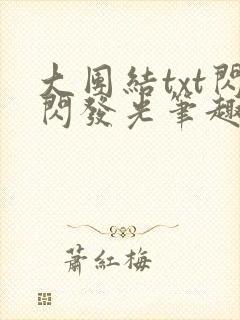 大團結txt閃
閃發光筆趣
蕭紅梅